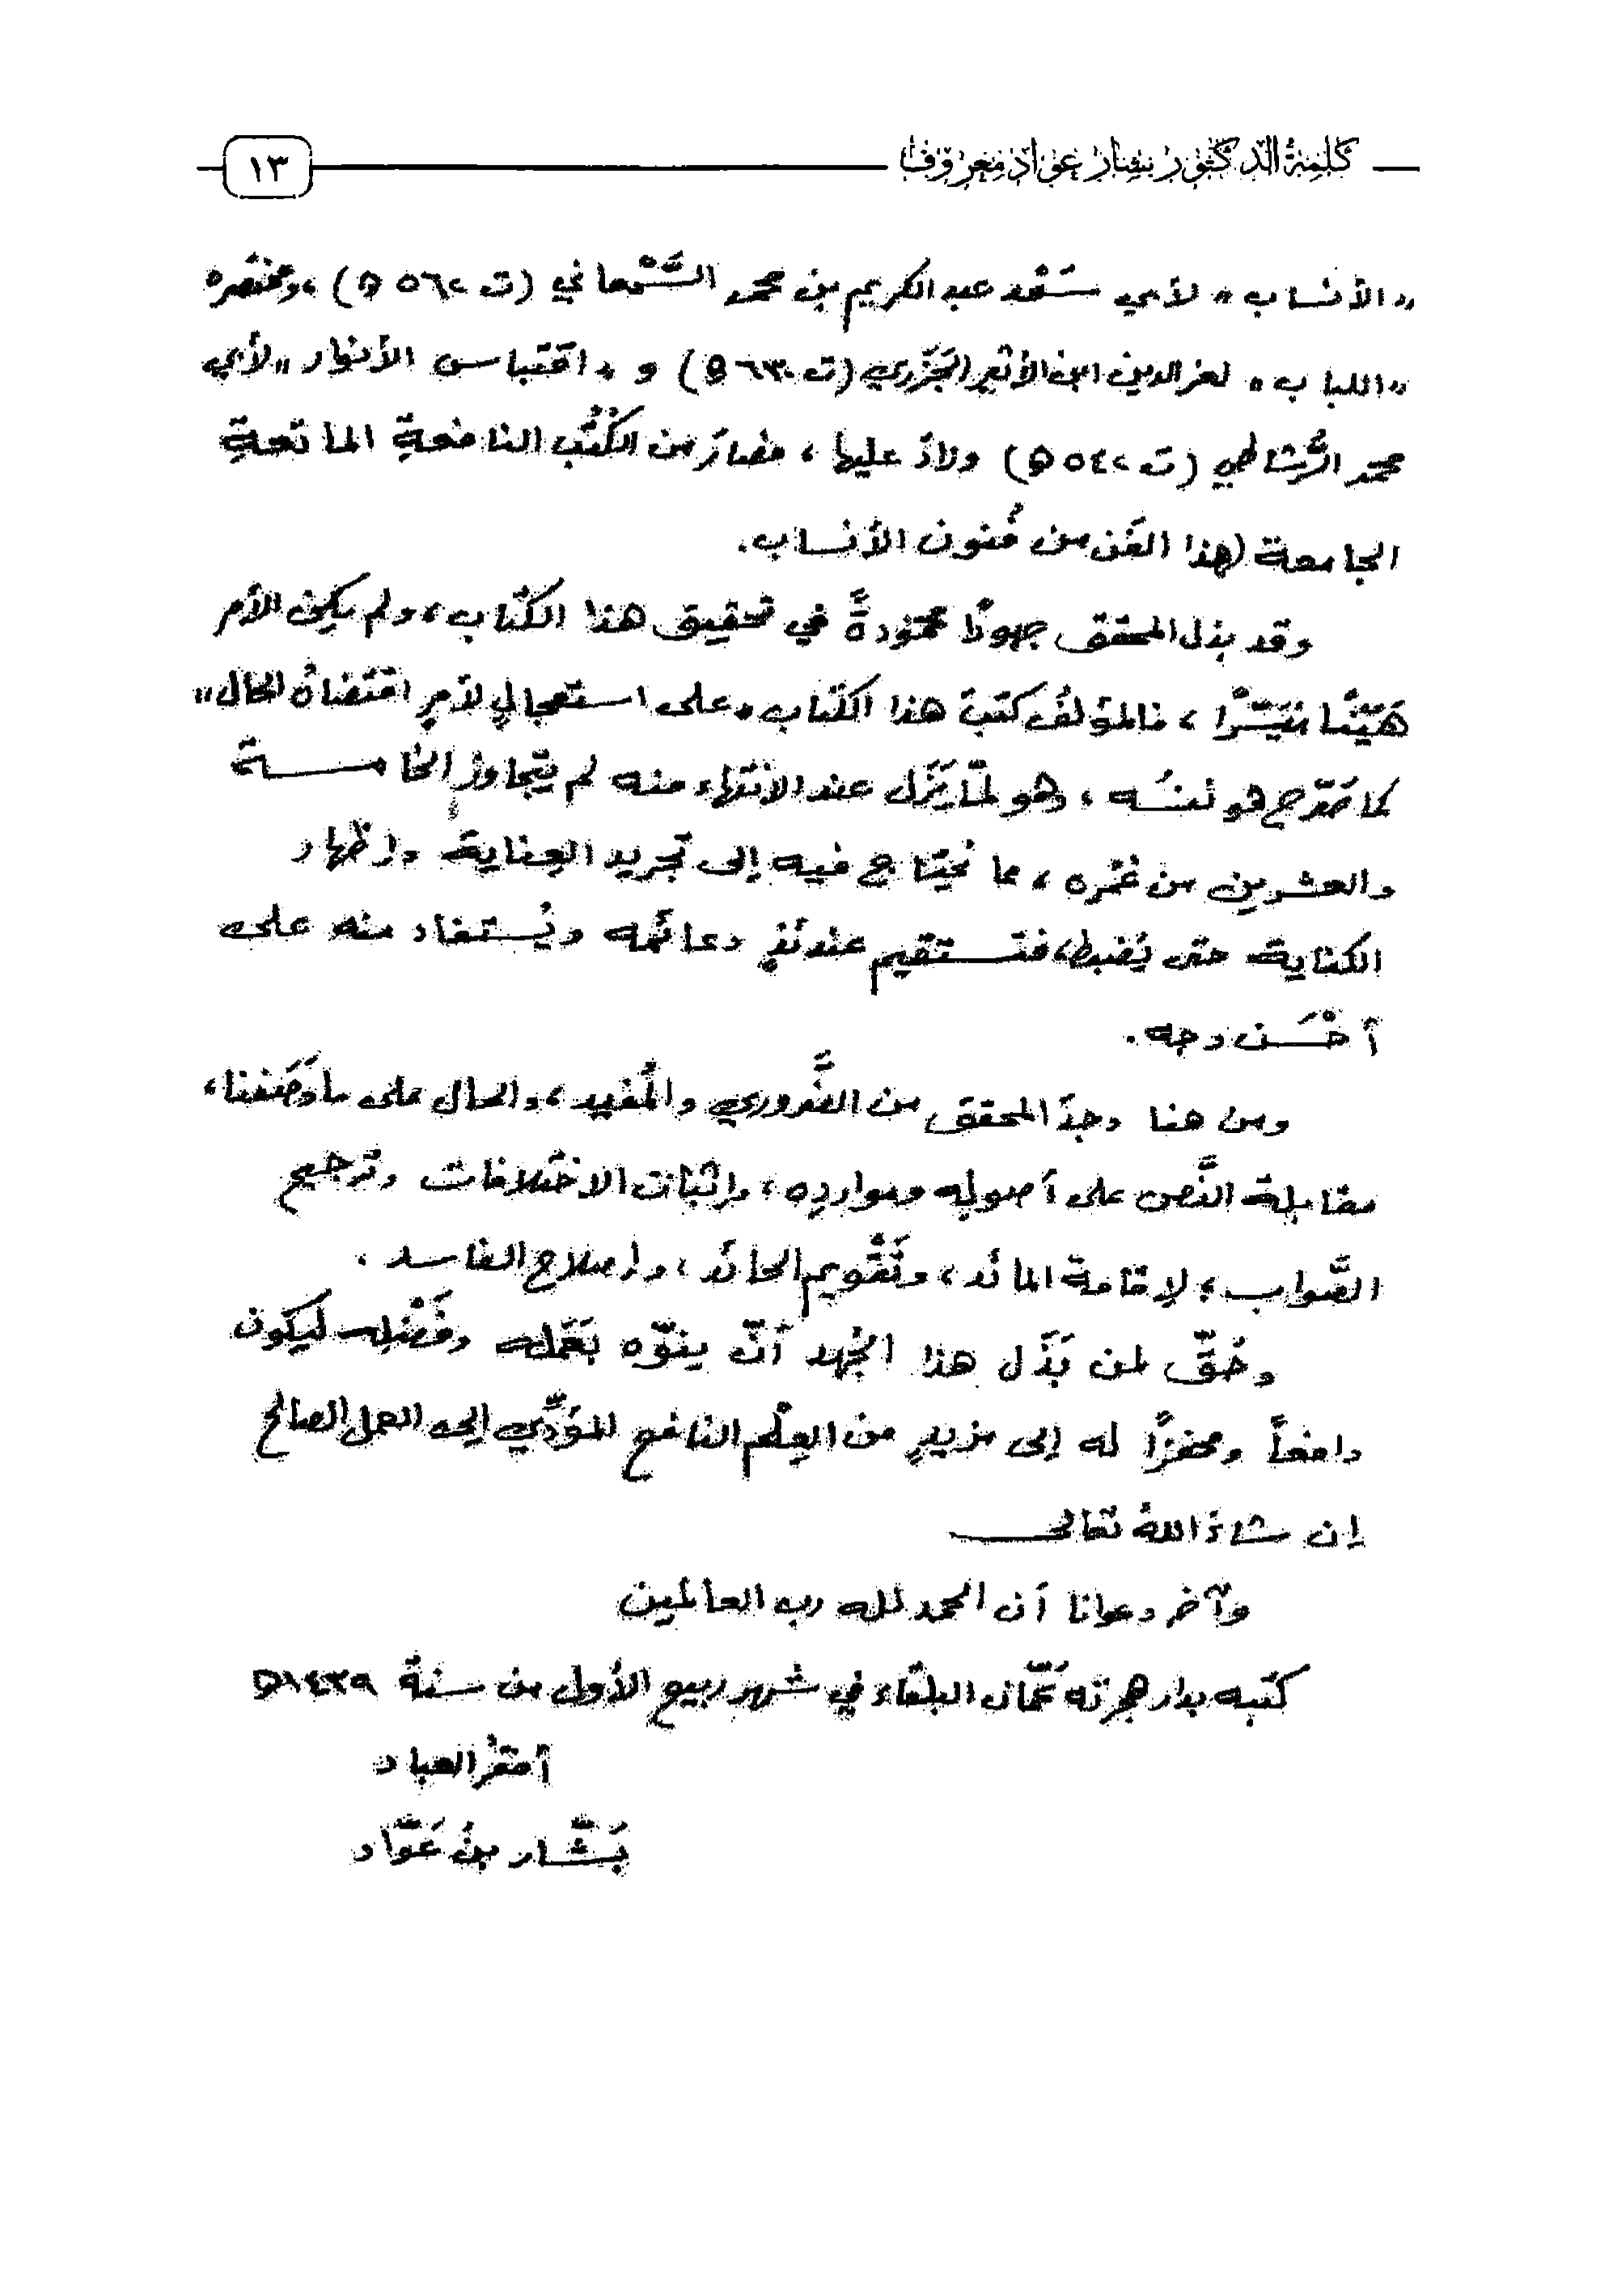 كلمة الدكتور بشار عواد معروف
١٣
«الأنساب» لأبي سَعْد عبد الكريم بن محمد السَّمْعاني (ت ٥٦٢ هـ)، ومختصره
«اللباب» لعز الدين ابن الأثير الجَزَري (ت ٦٣٠ هـ) و «اقتباس الأنوار» لأبي
محمد الرُّشاطي (ت ٥٤٢ هـ) وزادَ عليها، فصارَ من الكُتُب النافعةِ الماتعةِ
الجامعة لهذا الفَن من فُنون الأنساب.
وقد بذل المحقق جهودًا محمودةً في تحقيق هذا الكتاب، ولم يكن الأمر
هَيِّنًا مُيَسَّرًا، فالمؤلفُ كتبَ هذا الكتاب «على استعجالٍ لأمرٍ اقتضاهُ الحال»
كما صَرّح هو نفسُه، وهو لمّا يَزَل عند الانتهاء منه لم يتجاوز الخامسة
والعشرين من عُمُره، مما يحتاج فيه إلى تجريد العِناية وإظهار
الكفاية حتى يُضبط، فتستقيم عندئذٍ دعائمه ويُستفاد منه على
أحْسَن وجه.
ومن هنا وجدَ المحقق من الضَّروري والمُفيد، والحال على ما وَصَفنا،
مقابلة النَّص على أصوله وموارده، وإثبات الاختلافات وترجيح
الصَّواب؛ لإقامة المائد، وتَقْويم الحائد، وإصلاح الفاسد.
وحُقَّ لمن بَذَل هذا الجُهد أنْ ينوّه بعَمَله وفَضْله ليكون
دافعاً ومحفزًا له إلى مزيدٍ من العِلْم النافع المؤدّي إلى العمل الصالح
إن شاءَ اللهُ تعالى
وآخر دعوانا أن الحمد لله رب العالمين
كتبه بدار هجرته عَمّان البلقاء في شهر ربيع الأول من سنة ١٤٣٩هـ
أفقرُ العباد
بَشَّار بنُ عَوَّاد